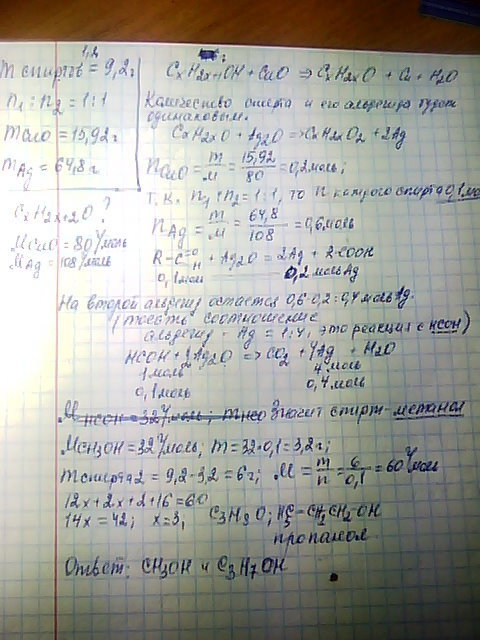 m спиртов 1,2 = 9,2г
n₁ : n₂ = 1:1
m CuO = 15,92г
m Ag = 64,8г
CxH2x+2O ?
M CuO = 80 г/моль
M Ag = 108 г/моль
CxH2x+1OH + CuO ⇒ CxH2xO + Cu + H2O
Количество спирта и его альдегида будет
одинаковым.
CxH2xO + Ag2O ⇒ CxH2xO2 + 2Ag
n CuO = m/M = 15,92/80 = 0,2 моль;
Т.К. n₁ : n₂ = 1:1, то n каждого спирта 0,1 моль
n Ag = m/M = 64,8/108 = 0,6 моль
R-C=O H + Ag2O = 2Ag + 2COOH
0,1 моль 0,2 моль Ag
На второй альдегид остаётся 0,6-0,2=0,4 моль Ag.
(то есть соотношение
альдегид : Ag = 1:4, это реакция с HCOH)
HCOH + 2Ag2O ⇒ CO2 + 4Ag + H2O
1 моль 4 моль
0,1 моль 0,4 моль
M HCOH = 32 г/моль; значит спирт-метанол
M CH3OH = 32 г/моль; m = 32·0,1 = 3,2г;
m спирта 2 = 9,2-3,2 = 6г; M = m/n = 6/0,1 = 60 г/моль
12x+2x+2+16=60
14x = 42; x=3, C3H8O; H3C-CH2CH2-OH
пропанол
Ответ: CH3OH и C3H7OH